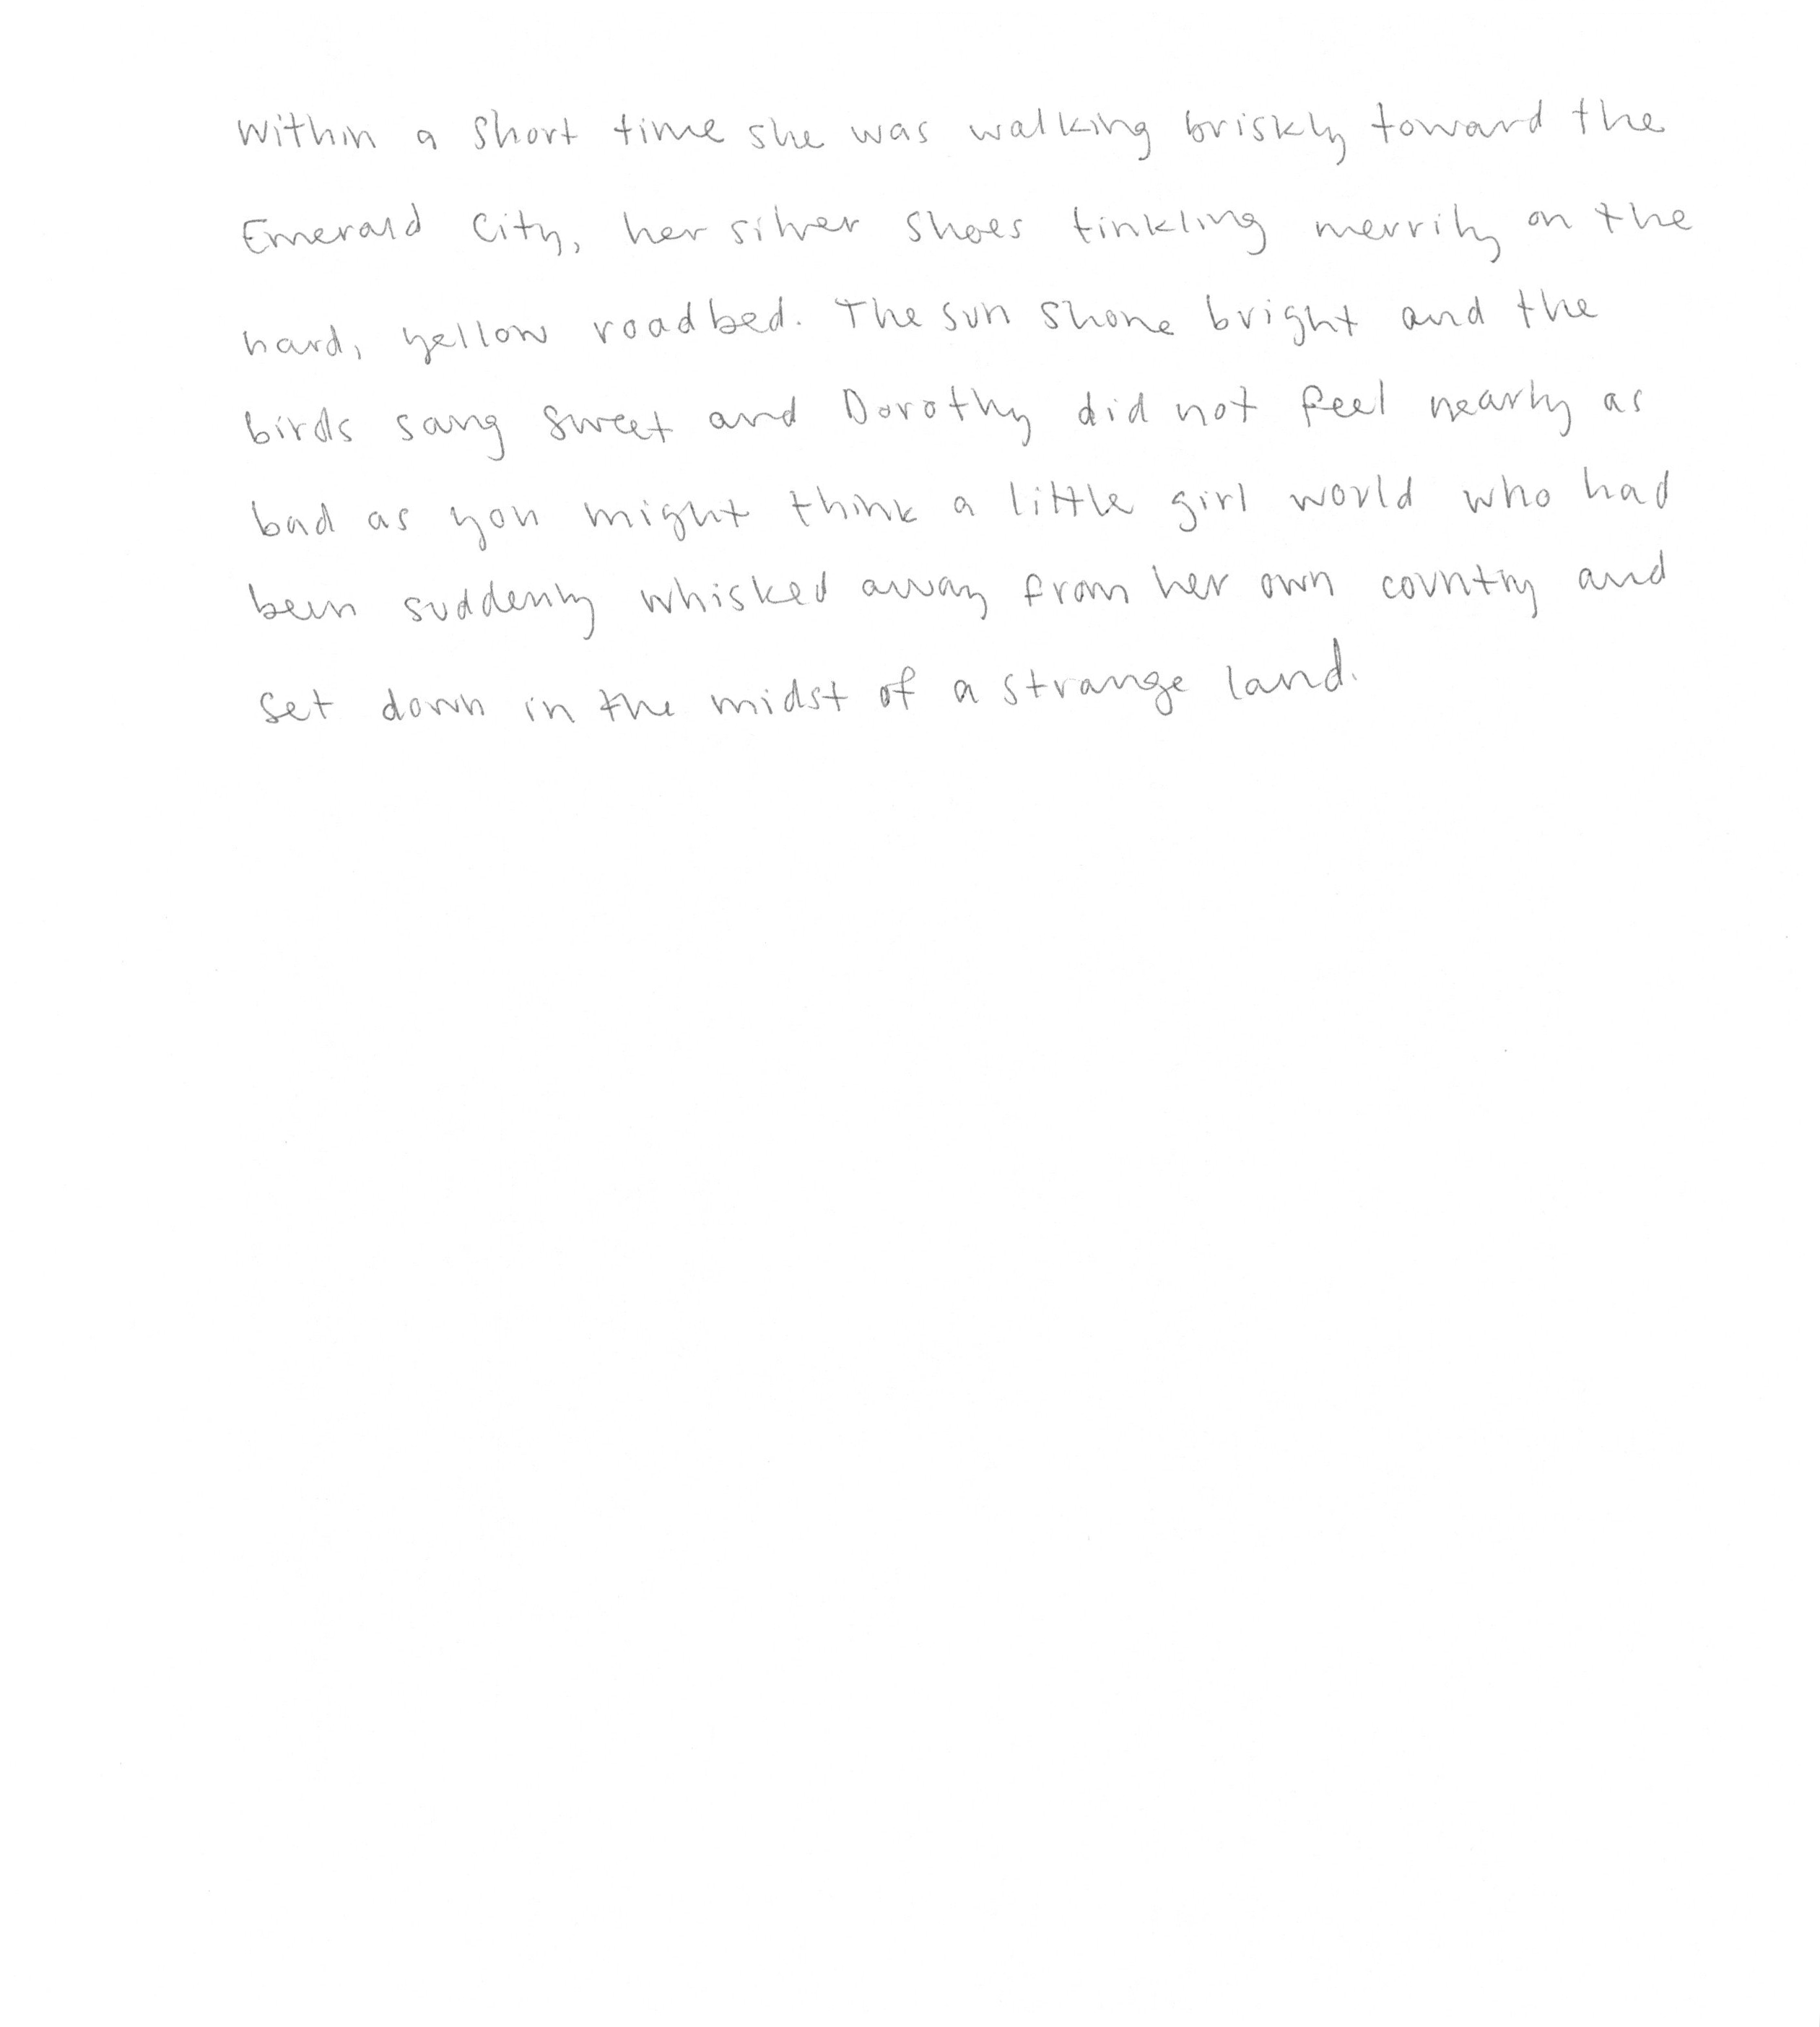 Within a short time she was walking briskly toward the
Emerald City, her silver shoes tinkling merrily on the
hard, yellow roadbed. The sun shone bright and the
birds sang sweet and Dorothy did not feel nearly as
bad as you might think a little girl would who had
been suddenly whisked away from her own country and
set down in the midst of a strange land.